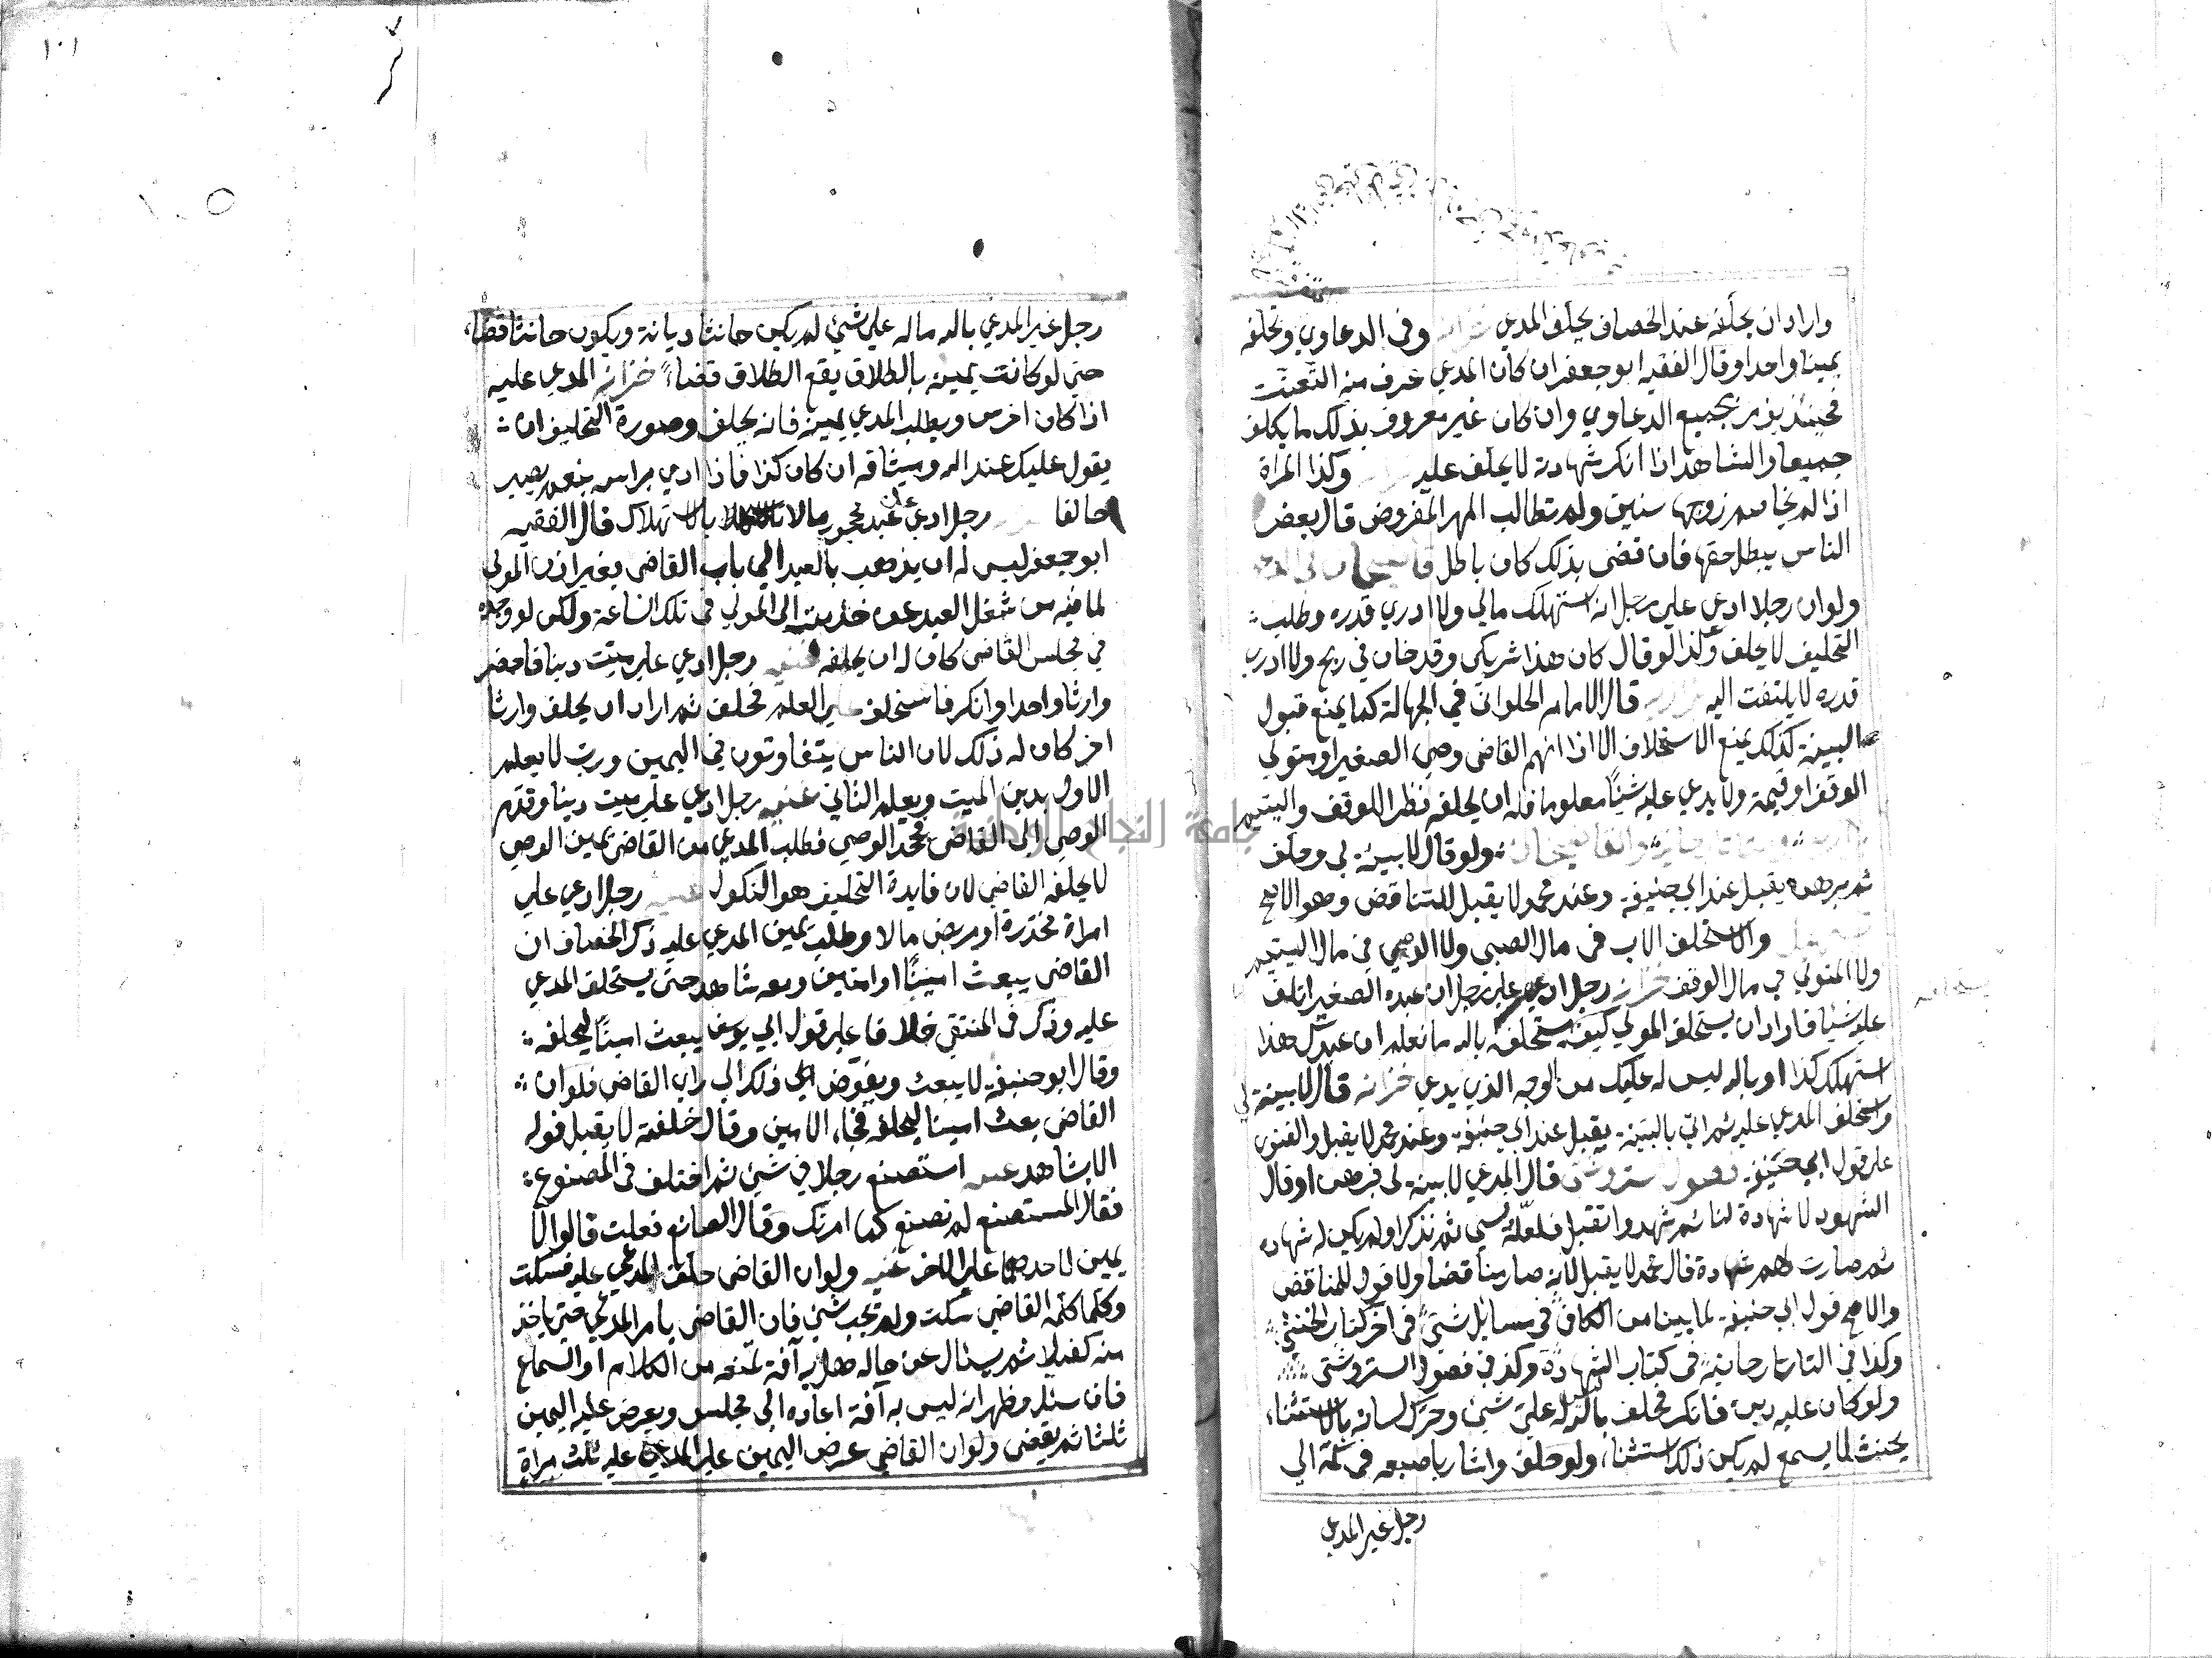 واراد ان يحلفه عند الخصاف يحلف المدعي وفى الدعاوي ويحلفه
يمينا واحدا وقال الفقيه ابو جعفر ان كان المدعي عرف منه التعنت
فحينئذ يؤمر بجميع الدعاوي وان كان غير معروف بذلك ما يكلف
جميعا والشاهد اذا انكر شهادته لا يحلف عليه وكذا المراة
اذا لم يخاصم زوجها سنين ولم تطالب المهر المفروض قال بعض
الناس يبطل حقها فان قضى بذلك كان باطل
ولو ان رجلا ادعي علي رجل انه استهلك مالي ولا ادري قدره وطلب
التحليف لا يحلف وكذا لو قال كان هذا شريكي وقد خان في ربح ولا ادري
قدره لا يلتفت اليه قال الامام الحلواني في الجهالة كما يمنع قبول
البينة كذلك يمنع الاستحلاف الا اذا اتهم القاضي وصي الصغير او متولي
الوقف او قيمه ولا يدعي عليه شيئا معلوما فله ان يحلفه نظرا للوقف واليتيم
ولو قال لا بينة لي وحلف
ثم برهن يقبل عند ابي حنيفة وعند محمد لا يقبل للتناقض وهو الاصح
والاستحلف الاب فى مال الصبي ولا الوصي في مال اليتيم
ولا المتولي في مال الوقف خزانه رجل ادعي علي رجل ان عبده الصغير اتلف
عليه شيئا فاراد ان يستحلف المولي كيف يستحلفه بالله ما تعلم ان عبدك هذا
استهلك كذا او بالله ليس له عليك من الوجه الذي يدعي خزانه قال لا بينة لي
واستحلف المدعي عليه ثم اتي بالبينة يقبل عند ابي حنيفة وعند محمد لا يقبل والفتوى
علي قول ابي حنيفة قال المدعي لا بينة لى فبرهن او قال
الشهود لا شهادة لنا ثم شهدوا تقبل فلعله نسي ثم تذكر او لم يكن له شهادة
ثم صارت لهم شهادة قال محمد لا يقبل لانه صار مناقضا ولا قول للمناقض
والاصح قول ابي حنيفة لما بينا من الكافي في مسايل شتي فى آخر كتاب الخنثي
وكذا في التاتارخانية فى كتاب الشهادة وكذا في فصول الستروشني
ولو كان عليه دين فانكر فحلف بالله ماله علي شيئ وحرك لسانه بالاستثناء
يحنث لما يسمع لم يكن ذلك استثناء ولو حلف واشار باصبعه فى كمه الي
رجل غير المدعي
١٠١
رجل غير المدعي بالله ماله علي شيئ لم يكن حانثا ديانة ويكون حانثا قضاء
حتي لو كانت يمينه بالطلاق يقع الطلاق قضاء خزانه المدعي عليه
اذا كان اخرس ويطلب المدعي يمينه فانه يحلف وصورة التحليف ان
يقول عليك عند الله وميثاقه ان كان كذا فاذا ادي براسه بنعم يصير
حالفا رجل ادعي علي عبد محجور مالا بالاستهلاك قال الفقيه
ابو جعفر ليس له ان يذهب بالعبد الي باب القاضي بغير اذن المولي
لما فيه من شغل العبد عن خدمته الي المولي في تلك الساعة ولكن لو وجده
في مجلس القاضي كان له ان يحلفه رجل ادعي علي ميت دينا فاحضر
وارثا واحدا وانكر فاستحلف علي العلم فحلف ثم اراد ان يحلف وارثا
اخر كان له ذلك لان الناس يتفاوتون في اليمين ورب لا يعلم
الاول بدين الميت ويعلم الثاني غنيه رجل ادعي علي ميت دينا وقدم
الوصي الى القاضي فجحد الوصي فطلب المدعي من القاضي يمين الوصي
لا يحلفه القاضي لان فايدة التحليف هو النكول رجل ادعي علي
امراة مخدرة او مريض مالا وطلب يمين المدعي عليه ذكر الخصاف ان
القاضي يبعث امينا او امينين ومعه شاهد حتي يستحلف المدعي
عليه وذكر فى المنتقي خلافا علي قول ابي يوسف يبعث امينا ليحلفه
وقال ابو حنيفة لا يبعث ويفوض الي ذلك الي راي القاضي فلو ان
القاضي بعث امينا ليحلفه فجاء الامين وقال حلفته لا يقبل قوله
الا بشاهد غنيه استصنع رجلا في شيئ ثم اختلف فى المصنوع
فقال المستصنع لم تصنع كما امرتك وقال الصانع فعلت قالوا لا
يمين لاحدهما علي الاخر غنيه ولو ان القاضي حلف المدعي عليه فسكت
وكلما كلمه القاضي سكت ولم يجب شيئ فان القاضي يامر المدعي حتي ياخذ
منه كفيلا ثم يسئال عن حاله هل به آفة تمنعه من الكلام او السماع
فان سئل وظهر انه ليس به آفة اعاده الى مجلس ويعرض عليه اليمين
ثلثا ثم يقضي ولو ان القاضي عرض اليمين علي المدعي عليه ثلث مراة
جامعة النجاح الوطنية